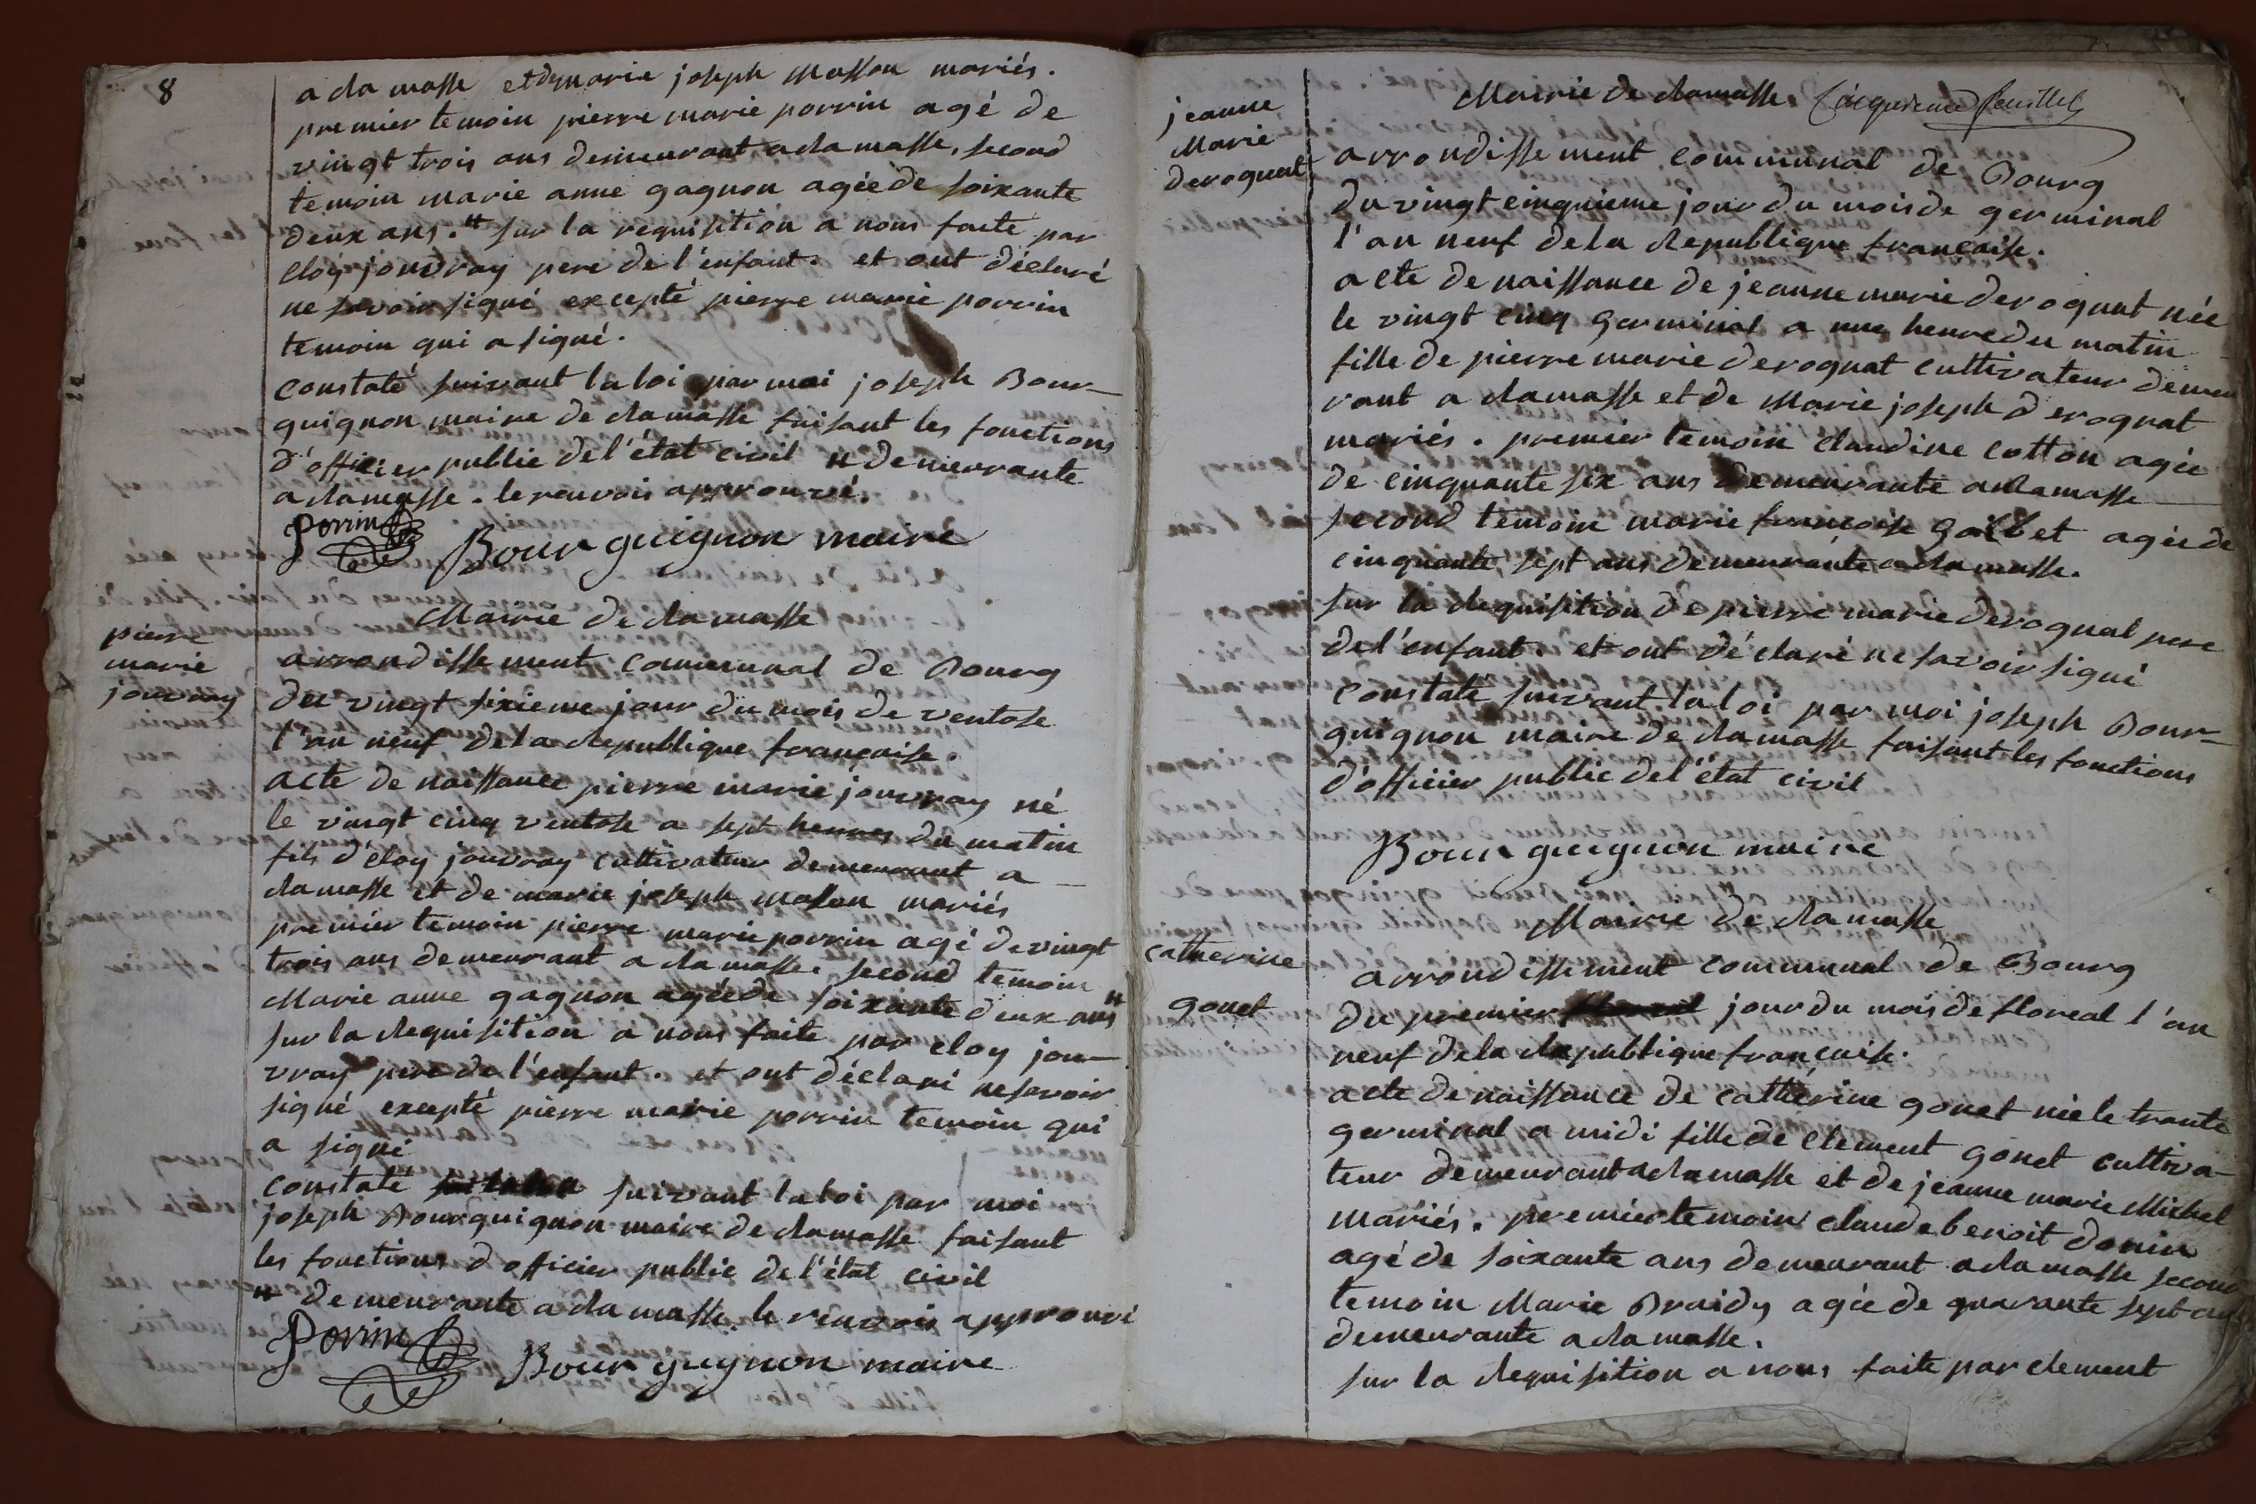 8
a ramasse et de marie joseph masson mariés.
premier temoin pierre marie perrin agé de
vingt trois ans demeurant a ramasse, second
temoin marie anne gagnon agée de soixante
deux ans. # sur la requisition a nous faite par
eloy jouvray pere de l'enfant. et ont déclaré
ne savoir signé excepté pierre marie perrin
temoin qui a signé.
constaté suivant la loi par moi joseph Bour-
guignon maire de ramasse faisant les fonctions
d'officier public de l'état civil # demeurante
a ramasse. le renvois approuvé.
Perrin
Bourguignon maire
pierre
marie
jouvray
Mairie de ramasse
arrondissement communal de Bourg
du vingt sixieme jour du mois de ventose
l'an neuf de la republique française.
acte de naissance pierre marie jouvray né
le vingt cinq ventose a sept heures du matin
fils d'éloy jouvray cultivateur demeurant a -
ramasse et de marie joseph mason mariés
premier temoin pierre marie perrin agé de vingt
trois ans demeurant a ramasse. second temoin
Marie anne gagnon agée de soixante deux ans #
sur la requisition a nous faite par eloy jou-
vray pere de l'enfant. et ont déclaré ne savoir
signé excepté pierre marie perrin temoin qui
a signé
constaté suivant la loi par moi
joseph Bourguignon maire de ramasse faisant
les fonctions d officier public de l'état civil
# demeurante a ramasse. le renvois approuvé
Perrin
Bourguignon maire
jeanne
Marie
derognat
Mairie de ramasse
cinquieme feuillet
arrondissement communal de Bourg
du vingt cinquieme jour du mois de germinal
l'an neuf de la republique française.
acte de naissance de jeanne marie derognat née
le vingt cinq germinal a une heure du matin
fille de pierre marie derognat cultivateur demeu
rant a ramasse et de Marie joseph derognat
mariés. premier temoin claudine cotton agée
de cinquante six ans demeurante a ramasse
second temoin marie françoise Galbet agée de
cinquante sept ans demeurante a ramasse.
sur la requisition de pierre marie derognat pere
de l'enfant. et ont déclaré ne savoir signé
constaté suivant la loi par moi joseph Bour-
guignon maire de ramasse faisant les fonctions
d'officier public de l'état civil
Bourguignon maire
catherine
gonet
Mairie de ramasse
arrondissement communal de Bourg
du premier jour du mois de floreal l'an
neuf de la republique française.
acte de naissance de catherine gonet née le trante
germinal a midi fille de clement gonet cultiva-
teur demeurant a ramasse et de jeanne marie Michel
mariés. premier temoin claude benoit donin
agé de soixante ans demeurant a ramasse second
temoin Marie Braidy agée de quarante sept ans
demeurante a ramasse.
sur la requisition a nous faite par clement